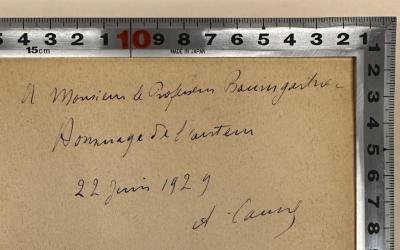 5 4 3 2 1 10 9 8 7 6 5 4 3 2 1
15cm
MADE IN JAPAN
1
2
3
4
5
6
7
8
A Monsieur le Professeur Baumgartner
Hommage de l'auteur
22 Juin 1929
A.